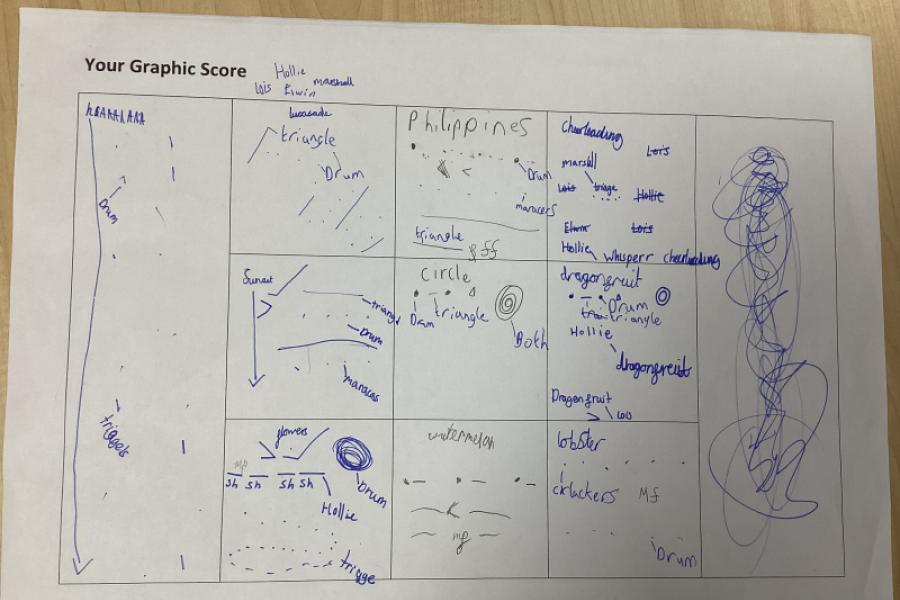 Your Graphic Score
Hollie
Lois Elwin marshall
hAAAAAAA
Drum
triggles
lucozade
triangle
Drum
Philippines
Drum
maracers
triangle
ff
cheerleading
Lois
marshll
Lois triage Hollie
Elwin Lois
Hollie whisperr cheerleading
Sunset
triangl
Drum
maracas
circle
Dram triangle
Both
dragonfruit
Drum
triangle
Hollie
dragonfreuit
Dragonfruit
Lois
flowers
mp
sh sh sh sh
Drum
Hollie
triage
watermelon
mp
lobster
clackers Mf
Drum